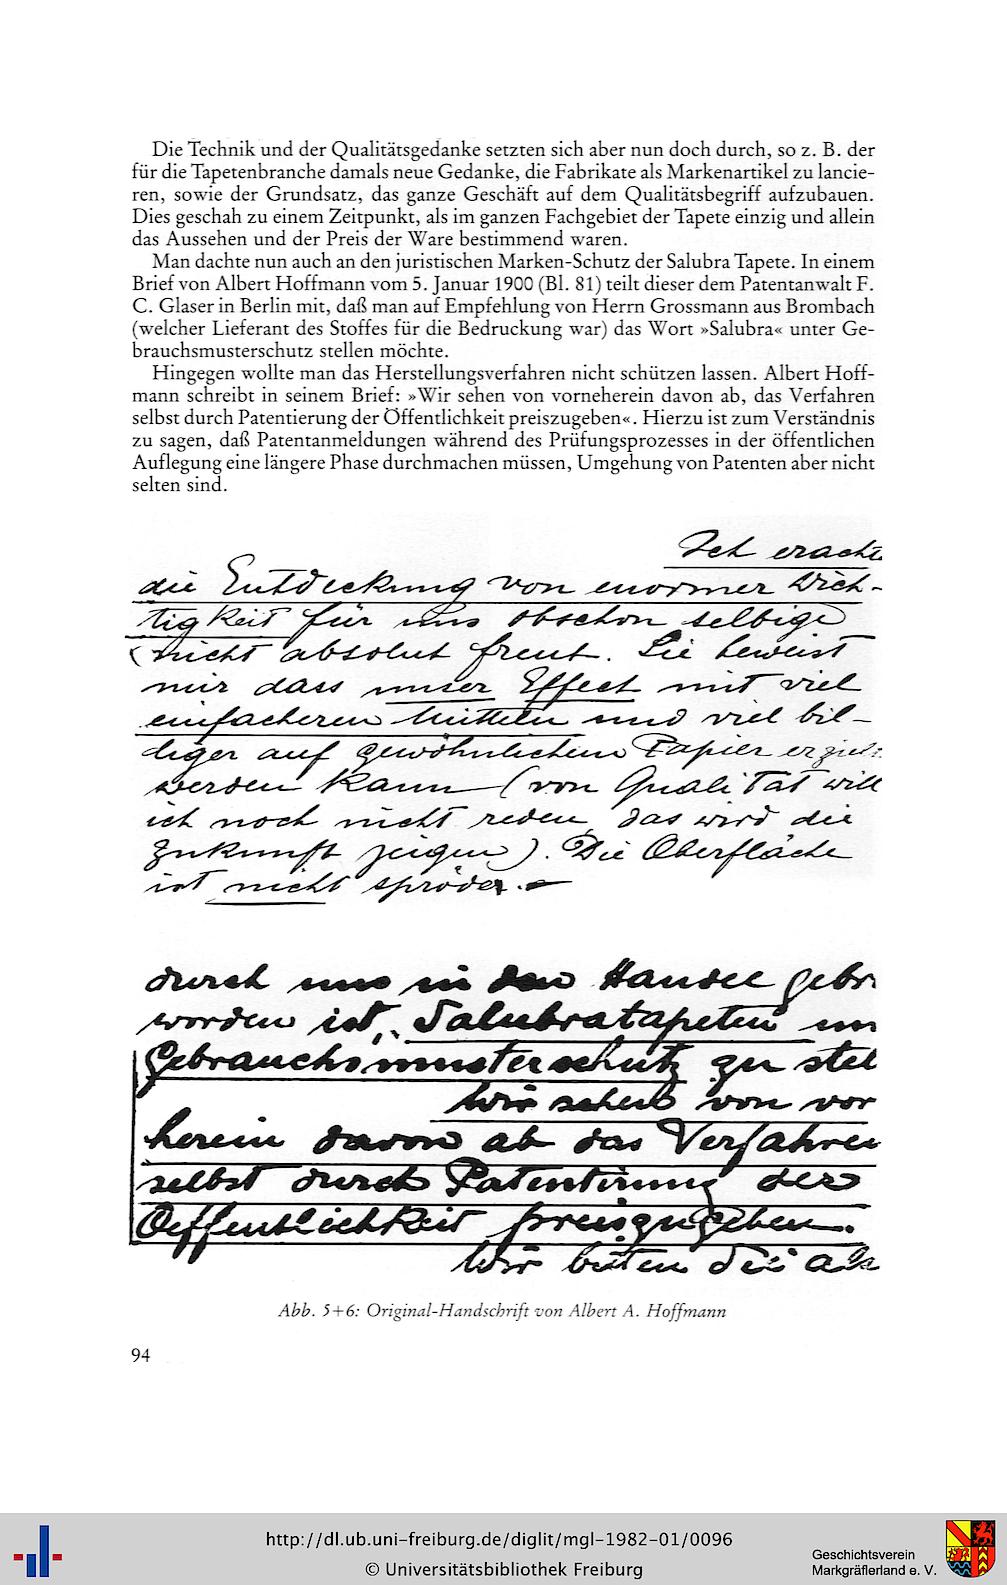 Die Technik und der Qualitätsgedanke setzten sich aber nun doch durch, so z. B. der
für die Tapetenbranche damals neue Gedanke, die Fabrikate als Markenartikel zu lancie-
ren, sowie der Grundsatz, das ganze Geschäft auf dem Qualitätsbegriff aufzubauen.
Dies geschah zu einem Zeitpunkt, als im ganzen Fachgebiet der Tapete einzig und allein
das Aussehen und der Preis der Ware bestimmend waren.
Man dachte nun auch an den juristischen Marken-Schutz der Salubra Tapete. In einem
Brief von Albert Hoffmann vom 5. Januar 1900 (Bl. 81) teilt dieser dem Patentanwalt F.
C. Glaser in Berlin mit, daß man auf Empfehlung von Herrn Grossmann aus Brombach
(welcher Lieferant des Stoffes für die Bedruckung war) das Wort »Salubra« unter Ge-
brauchsmusterschutz stellen möchte.
Hingegen wollte man das Herstellungsverfahren nicht schützen lassen. Albert Hoff-
mann schreibt in seinem Brief: »Wir sehen von vorneherein davon ab, das Verfahren
selbst durch Patentierung der Öffentlichkeit preiszugeben«. Hierzu ist zum Verständnis
zu sagen, daß Patentanmeldungen während des Prüfungsprozesses in der öffentlichen
Auflegung eine längere Phase durchmachen müssen, Umgehung von Patenten aber nicht
selten sind.
Ich erachte
die Entdeckung von enormer Wich-
tigkeit für uns obschon selbige
nicht absolut freut. Sie beweist
mir dass unser Effect mit viel
einfacheren Mitteln und viel bil-
liger auf gewöhnlichem Papier erzielt
werden kann (von Qualität will
ich noch nicht reden, das wird die
Zukunft zeigen). Die Oberfläche
ist nicht spröde.
durch uns in den Handel gebr
worden ist, Salubratapeten un
Gebrauchsmusterschutz zu stel
Wir sehen von vor
herein davon ab das Verfahren
selbst durch Patentirung der
Oeffentlichkeit preiszugeben.
Wir bitten Sie als
Abb. 5+6: Original-Handschrift von Albert A. Hoffmann
94
http://dl.ub.uni-freiburg.de/diglit/mgl-1982-01/0096
© Universitätsbibliothek Freiburg
Geschichtsverein
Markgräflerland e. V.